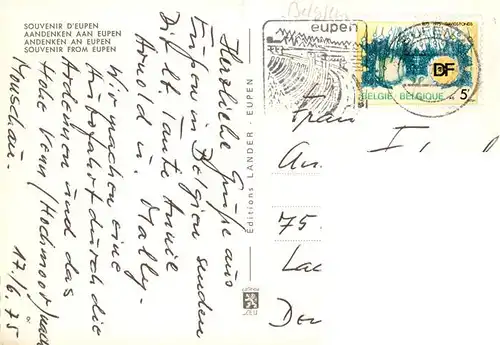 SOUVENIR D'EUPEN
AANDENKEN AAN EUPEN
ANDENKEN AN EUPEN
SOUVENIR FROM EUPEN
Herzliche Grüße aus
Eupen in Belgien senden
Dir lb. Tante Annie
Arnold u. Mally.
Wir machen eine
Ausfahrt durch die
Ardennen und das
Hohe Venn (Hochmoor) nach
Monschau.
17/6.75
Editions LANDER - EUPEN
Belgien
eupen
EUPEN
BELGIE BELGIQUE 5F
DF
Frau
An
75